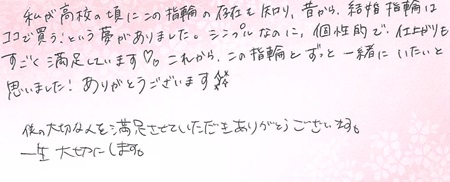 私が高校の頃にこの指輪の存在を知り、昔から、結婚指輪は
ココで買う!という夢がありました。シンプルなのに、個性的で、仕上がりも
すごく満足しています♡。これから、この指輪とずっと一緒にいたいと
思いました!ありがとうございます☆
僕の大切な人を満足させていただきありがとうございます。
一生大切にします。